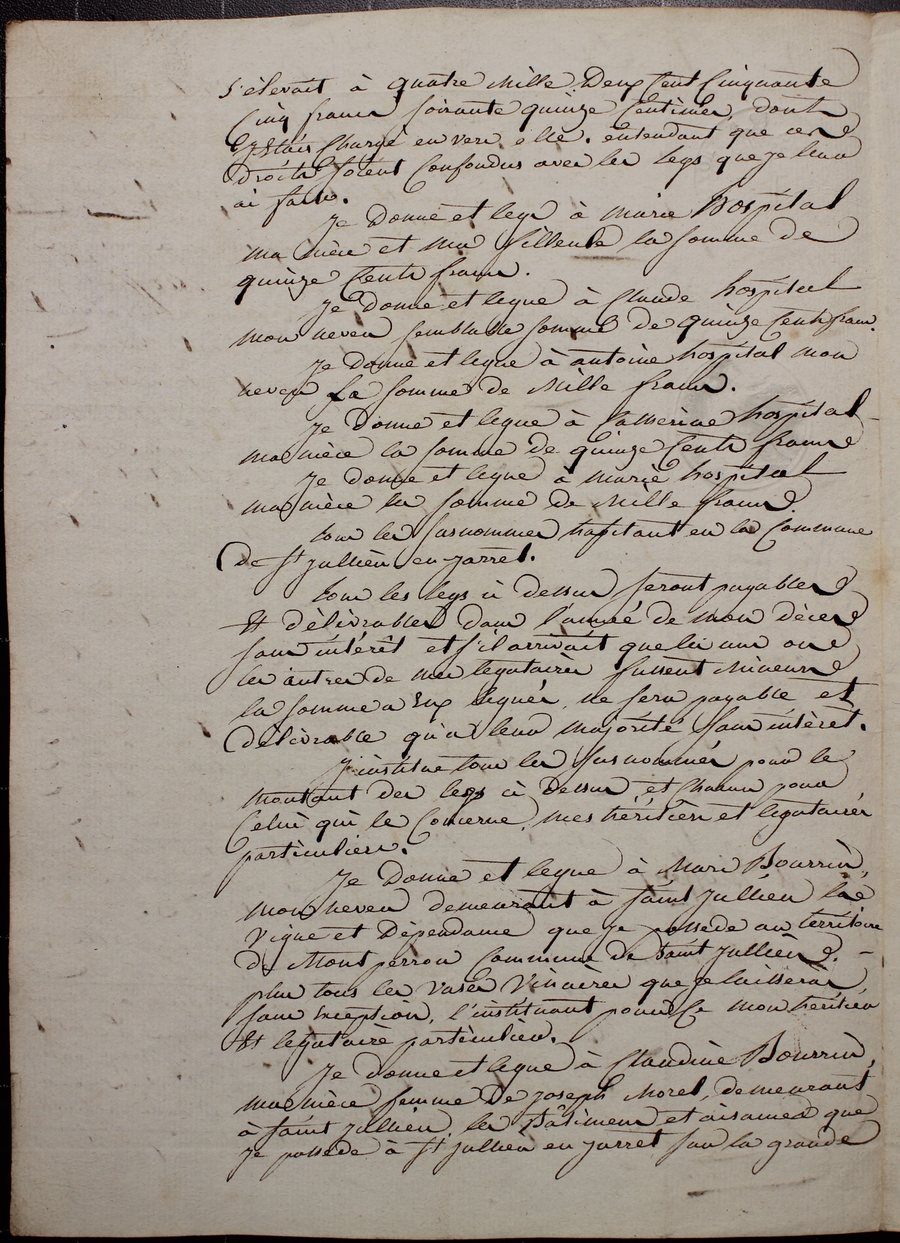 s'élevait à quatre mille Deux Cent Cinquante
Cinq francs soixante quinze Centimes, dont
j'étais Chargé envers elle. entendant que ces
droits soient Confondus avec les legs que je leur
ai faits.
Je Donne et legue à marie Hospital
ma nièce et ma filleule la somme de
quinze Cents francs.
Je donne et legue à Claude hospital
mon neveu semblable somme de quinze Cents francs.
Je donne et legue à antoine hospital mon
neveu La somme de Mille francs.
Je Donne et legue à Catherine hospital
ma nièce la somme de quinze Cents francs
Je donne et legue à marie hospital
ma nièce la somme de Mille francs.
tous les susnommés habitant en la Commune
De St jullien en jarret.
tous les legs ci dessus seront payables
Et délivrables dans l'année de mon décès
sans intérêt et s'il arrivait que les uns ou
les autres de mes legataires fussent Mineurs
la somme a Eux leguée, ne sera payable et
délivrable qu'a leur majorité sans intérêt.
J'institue tous les susnommés pour le
montant des legs ci Dessus, et Chacun pour
Celui qui le Concerne, mes héritiers et legataires
particuliers.
Je Donne et legue à Mari Bourrin,
mon neveu demeurant à saint jullien la
Vigne et Dépendance que je possede au territoire
de Montperrou Commune de saint jullien.
plus tous les vases Vinaires que je laisserai
sans Exception, l'instituant pour Ce mon héritier
Et legataire particulier.
Je donne et legue à Claudine Bourrin,
ma nièce femme de joseph Morel, demeurant
à saint jullien, les Bâtiments et aisances que
je possede à St jullien en jarret sur la grande